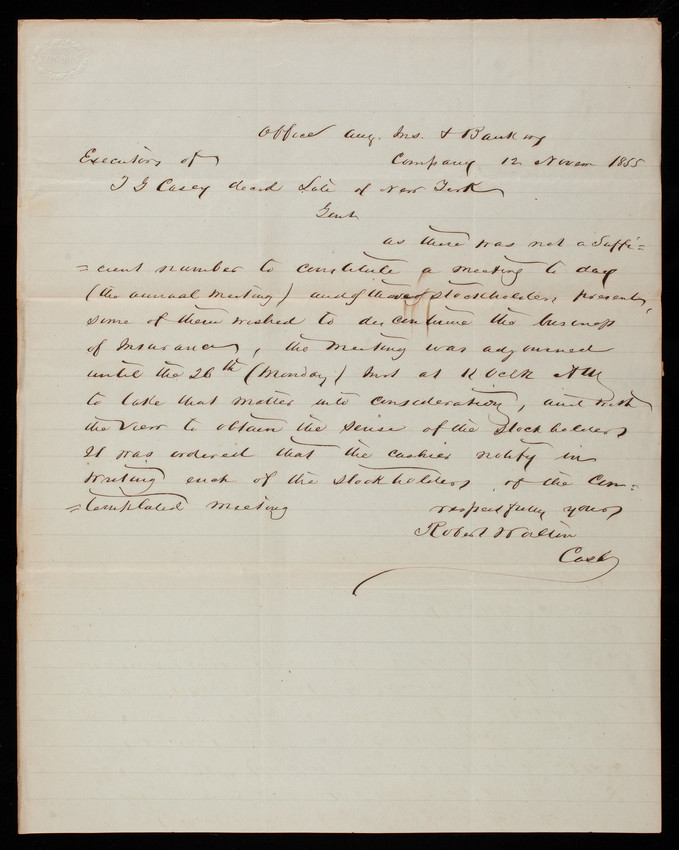 Office Aug. Ins. & Banking
Executors of Company 12 Novem 1855
T G Casey decd Late of New York
Gent
as there was not a Suffi=
=cient number to constitute a meeting to day
(the annual meeting) and of the stockholders present,
some of them wished to discontinue the business
of Insurance, the meeting was adjourned
until the 26th (Monday) Inst at 11 oclk AM
to take that matter into consideration, and with
the View to obtain the sense of the Stockholders
It was ordered that the cashier notify in
writing each of the stockholders of the Con=
=templated meeting
respectfully yours
Robert Walton
Cash